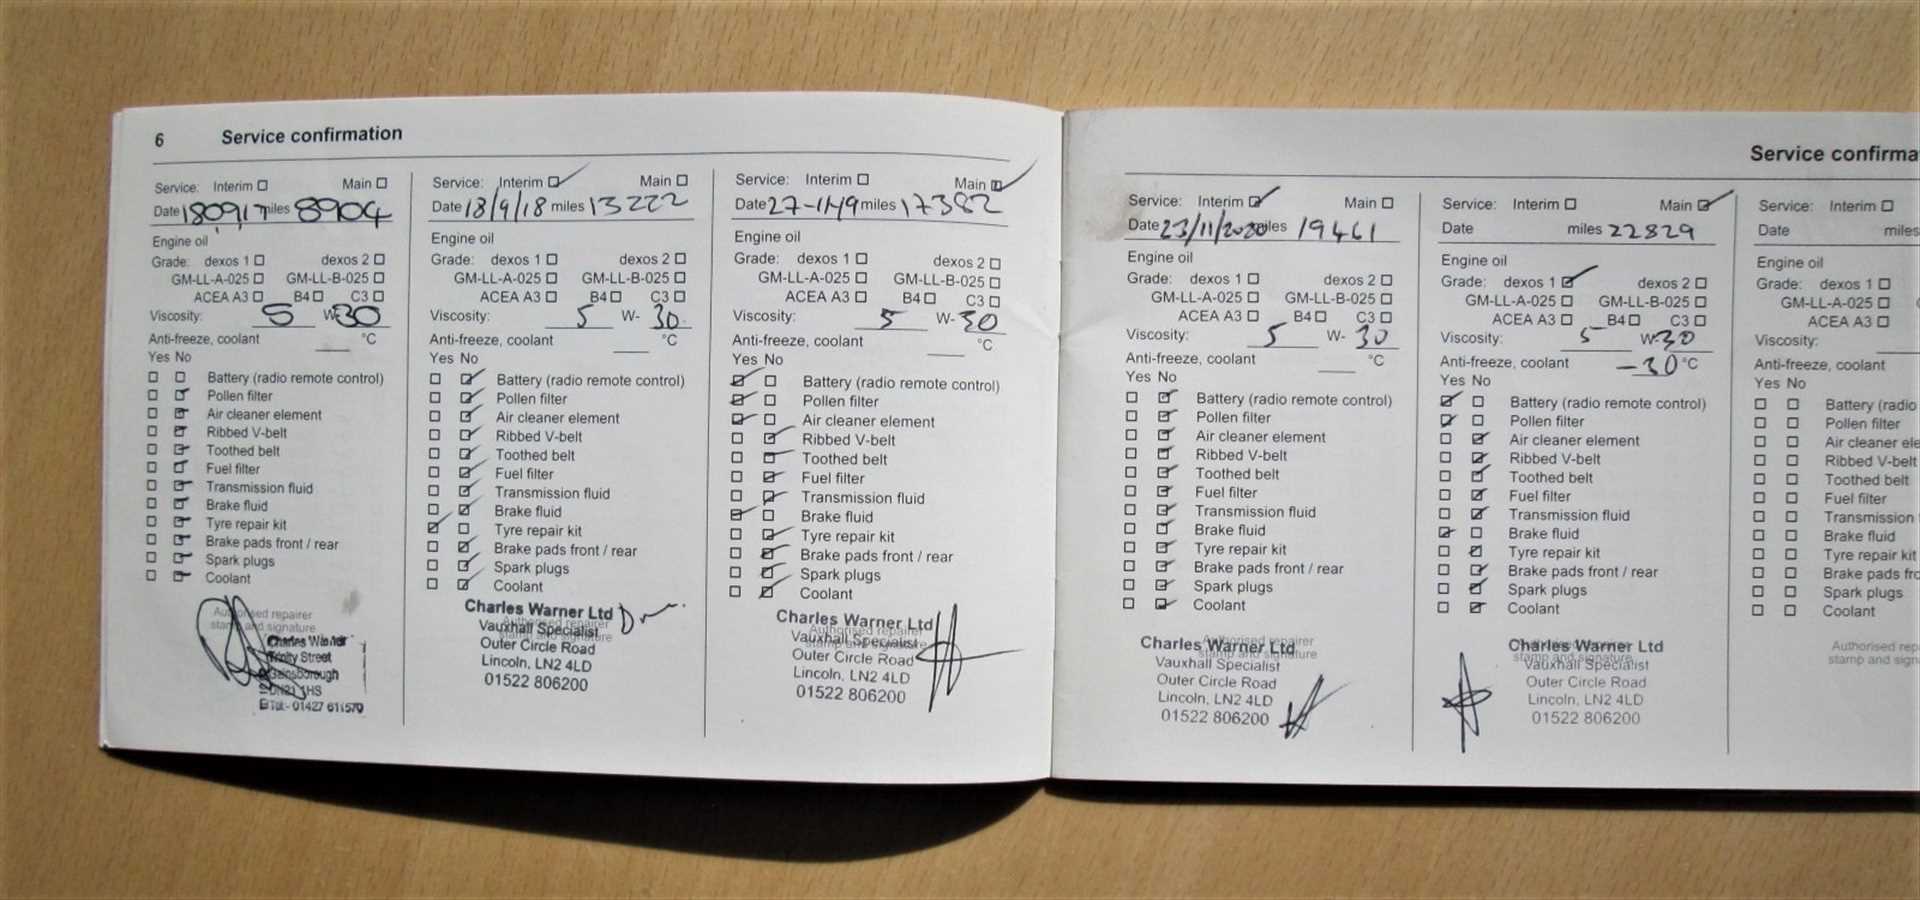 6 Service confirmation
Service: Interim Main
Date 180917 miles 8904
Engine oil
Grade: dexos 1 dexos 2
GM-LL-A-025 GM-LL-B-025
ACEA A3 B4 C3
Viscosity: 5 W-30
Anti-freeze, coolant °C
Yes No
Battery (radio remote control)
Pollen filter
Air cleaner element
Ribbed V-belt
Toothed belt
Fuel filter
Transmission fluid
Brake fluid
Tyre repair kit
Brake pads front / rear
Spark plugs
Coolant
Authorised repairer
stamp and signature
Charles Warner
Trinity Street
Gainsborough
DN21 1HS
Tel:- 01427 611570
Service: Interim Main
Date 18/9/18 miles 13222
Engine oil
Grade: dexos 1 dexos 2
GM-LL-A-025 GM-LL-B-025
ACEA A3 B4 C3
Viscosity: 5 W- 30
Anti-freeze, coolant °C
Yes No
Battery (radio remote control)
Pollen filter
Air cleaner element
Ribbed V-belt
Toothed belt
Fuel filter
Transmission fluid
Brake fluid
Tyre repair kit
Brake pads front / rear
Spark plugs
Coolant
Charles Warner Ltd
Authorised repairer
Vauxhall Specialist
stamp and signature
Outer Circle Road
Lincoln, LN2 4LD
01522 806200
Service: Interim Main
Date 27-11-19 miles 17382
Engine oil
Grade: dexos 1 dexos 2
GM-LL-A-025 GM-LL-B-025
ACEA A3 B4 C3
Viscosity: 5 W-30
Anti-freeze, coolant °C
Yes No
Battery (radio remote control)
Pollen filter
Air cleaner element
Ribbed V-belt
Toothed belt
Fuel filter
Transmission fluid
Brake fluid
Tyre repair kit
Brake pads front / rear
Spark plugs
Coolant
Charles Warner Ltd
Authorised repairer
Vauxhall Specialist
stamp and signature
Outer Circle Road
Lincoln, LN2 4LD
01522 806200
Service confirma
Service: Interim Main
Date 23/11/2020 miles 19461
Engine oil
Grade: dexos 1 dexos 2
GM-LL-A-025 GM-LL-B-025
ACEA A3 B4 C3
Viscosity: 5 W- 30
Anti-freeze, coolant °C
Yes No
Battery (radio remote control)
Pollen filter
Air cleaner element
Ribbed V-belt
Toothed belt
Fuel filter
Transmission fluid
Brake fluid
Tyre repair kit
Brake pads front / rear
Spark plugs
Coolant
Authorised repairer
Charles Warner Ltd
stamp and signature
Vauxhall Specialist
Outer Circle Road
Lincoln, LN2 4LD
01522 806200
Service: Interim Main
Date miles 22829
Engine oil
Grade: dexos 1 dexos 2
GM-LL-A-025 GM-LL-B-025
ACEA A3 B4 C3
Viscosity: 5 W-30
Anti-freeze, coolant -30 °C
Yes No
Battery (radio remote control)
Pollen filter
Air cleaner element
Ribbed V-belt
Toothed belt
Fuel filter
Transmission fluid
Brake fluid
Tyre repair kit
Brake pads front / rear
Spark plugs
Coolant
Charles Warner Ltd
stamp and signature
Vauxhall Specialist
Outer Circle Road
Lincoln, LN2 4LD
01522 806200
Service: Interim
Date miles
Engine oil
Grade: dexos 1
GM-LL-A-025
ACEA A3
Viscosity:
Anti-freeze, coolant
Yes No
Battery (radio
Pollen filter
Air cleaner ele
Ribbed V-belt
Toothed belt
Fuel filter
Transmission
Brake fluid
Tyre repair kit
Brake pads fro
Spark plugs
Coolant
Authorised rep
stamp and sign